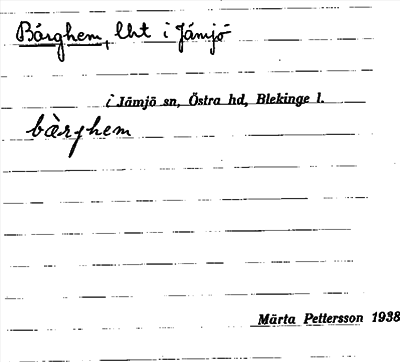 Bårghem, lht i Jämjö
i Jämjö sn, Östra hd, Blekinge l.
bàrghem
Märta Pettersson 1938